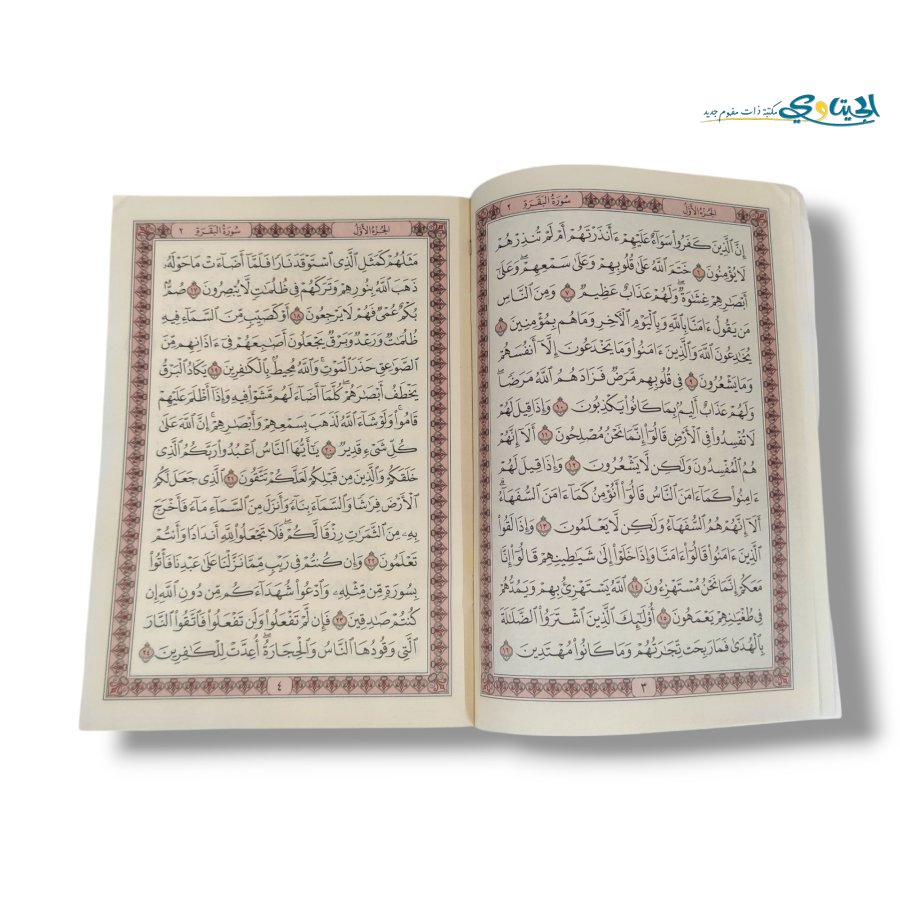 الجيتاوي
مكتبة ذات مفهوم جديد
الجزء الأول
سورة البقرة ٢
إِنَّ ٱلَّذِينَ كَفَرُوا۟ سَوَآءٌ عَلَيْهِمْ ءَأَنذَرْتَهُمْ أَمْ لَمْ تُنذِرْهُمْ
لَا يُؤْمِنُونَ ٦ خَتَمَ ٱللَّهُ عَلَىٰ قُلُوبِهِمْ وَعَلَىٰ سَمْعِهِمْ ۖ وَعَلَىٰٓ
أَبْصَٰرِهِمْ غِشَٰوَةٌ ۖ وَلَهُمْ عَذَابٌ عَظِيمٌ ٧ وَمِنَ ٱلنَّاسِ
مَن يَقُولُ ءَامَنَّا بِٱللَّهِ وَبِٱلْيَوْمِ ٱلْءَاخِرِ وَمَا هُم بِمُؤْمِنِينَ ٨
يُخَٰدِعُونَ ٱللَّهَ وَٱلَّذِينَ ءَامَنُوا۟ وَمَا يَخْدَعُونَ إِلَّآ أَنفُسَهُمْ
وَمَا يَشْعُرُونَ ٩ فِى قُلُوبِهِم مَّرَضٌ فَزَادَهُمُ ٱللَّهُ مَرَضًا ۖ
وَلَهُمْ عَذَابٌ أَلِيمٌۢ بِمَا كَانُوا۟ يَكْذِبُونَ ١٠ وَإِذَا قِيلَ لَهُمْ
لَا تُفْسِدُوا۟ فِى ٱلْأَرْضِ قَالُوٓا۟ إِنَّمَا نَحْنُ مُصْلِحُونَ ١١ أَلَآ إِنَّهُمْ
هُمُ ٱلْمُفْسِدُونَ وَلَٰكِن لَّا يَشْعُرُونَ ١٢ وَإِذَا قِيلَ لَهُمْ
ءَامِنُوا۟ كَمَآ ءَامَنَ ٱلنَّاسُ قَالُوٓا۟ أَنُؤْمِنُ كَمَآ ءَامَنَ ٱلسُّفَهَآءُ ۗ
أَلَآ إِنَّهُمْ هُمُ ٱلسُّفَهَآءُ وَلَٰكِن لَّا يَعْلَمُونَ ١٣ وَإِذَا لَقُوا۟
ٱلَّذِينَ ءَامَنُوا۟ قَالُوٓا۟ ءَامَنَّا وَإِذَا خَلَوْا۟ إِلَىٰ شَيَٰطِينِهِمْ قَالُوٓا۟ إِنَّا
مَعَكُمْ إِنَّمَا نَحْنُ مُسْتَهْزِءُونَ ١٤ ٱللَّهُ يَسْتَهْزِئُ بِهِمْ وَيَمُدُّهُمْ
فِى طُغْيَٰنِهِمْ يَعْمَهُونَ ١٥ أُو۟لَٰٓئِكَ ٱلَّذِينَ ٱشْتَرَوُا۟ ٱلضَّلَٰلَةَ
بِٱلْهُدَىٰ فَمَا رَبِحَت تِّجَٰرَتُهُمْ وَمَا كَانُوا۟ مُهْتَدِينَ ١٦
٣
الجزء الأول
سورة البقرة ٢
مَثَلُهُمْ كَمَثَلِ ٱلَّذِى ٱسْتَوْقَدَ نَارًا فَلَمَّآ أَضَآءَتْ مَا حَوْلَهُۥ
ذَهَبَ ٱللَّهُ بِنُورِهِمْ وَتَرَكَهُمْ فِى ظُلُمَٰتٍ لَّا يُبْصِرُونَ ١٧ صُمٌّۢ
بُكْمٌ عُمْىٌ فَهُمْ لَا يَرْجِعُونَ ١٨ أَوْ كَصَيِّبٍ مِّنَ ٱلسَّمَآءِ فِيهِ
ظُلُمَٰتٌ وَرَعْدٌ وَبَرْقٌ يَجْعَلُونَ أَصَٰبِعَهُمْ فِىٓ ءَاذَانِهِم مِّنَ
ٱلصَّوَٰعِقِ حَذَرَ ٱلْمَوْتِ ۚ وَٱللَّهُ مُحِيطٌۢ بِٱلْكَٰفِرِينَ ١٩ يَكَادُ ٱلْبَرْقُ
يَخْطَفُ أَبْصَٰرَهُمْ ۖ كُلَّمَآ أَضَآءَ لَهُم مَّشَوْا۟ فِيهِ وَإِذَآ أَظْلَمَ عَلَيْهِمْ
قَامُوا۟ ۚ وَلَوْ شَآءَ ٱللَّهُ لَذَهَبَ بِسَمْعِهِمْ وَأَبْصَٰرِهِمْ ۚ إِنَّ ٱللَّهَ عَلَىٰ
كُلِّ شَىْءٍ قَدِيرٌ ٢٠ يَٰٓأَيُّهَا ٱلنَّاسُ ٱعْبُدُوا۟ رَبَّكُمُ ٱلَّذِى
خَلَقَكُمْ وَٱلَّذِينَ مِن قَبْلِكُمْ لَعَلَّكُمْ تَتَّقُونَ ٢١ ٱلَّذِى جَعَلَ لَكُمُ
ٱلْأَرْضَ فِرَٰشًا وَٱلسَّمَآءَ بِنَآءً وَأَنزَلَ مِنَ ٱلسَّمَآءِ مَآءً فَأَخْرَجَ
بِهِۦ مِنَ ٱلثَّمَرَٰتِ رِزْقًا لَّكُمْ ۖ فَلَا تَجْعَلُوا۟ لِلَّهِ أَندَادًا وَأَنتُمْ
تَعْلَمُونَ ٢٢ وَإِن كُنتُمْ فِى رَيْبٍ مِّمَّا نَزَّلْنَا عَلَىٰ عَبْدِنَا فَأْتُوا۟
بِسُورَةٍ مِّن مِّثْلِهِۦ وَٱدْعُوا۟ شُهَدَآءَكُم مِّن دُونِ ٱللَّهِ إِن
كُنتُمْ صَٰدِقِينَ ٢٣ فَإِن لَّمْ تَفْعَلُوا۟ وَلَن تَفْعَلُوا۟ فَٱتَّقُوا۟ ٱلنَّارَ
ٱلَّتِى وَقُودُهَا ٱلنَّاسُ وَٱلْحِجَارَةُ ۖ أُعِدَّتْ لِلْكَٰفِرِينَ ٢٤
٤